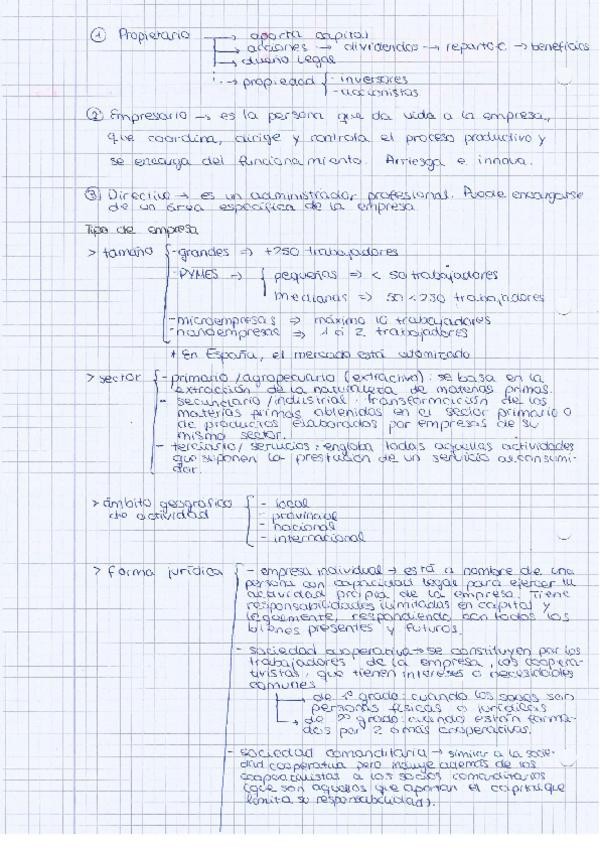 ① Propietario → aporta capital
→ acciones → dividendos → reparto € → beneficios
→ dueño legal
→ propiedad { - inversores
- accionistas
② Empresario → es la persona que da vida a la empresa,
que coordina, dirige y controla el proceso productivo y
se encarga del funcionamiento. Arriesga e innova.
③ Directivo → es un administrador profesional. Puede encargarse
de un área específica de la empresa
Tipo de empresa
> tamaño { - grandes => +250 trabajadores
- PYMES → { pequeñas => < 50 trabajadores
medianas => 50 < 250 trabajadores
- microempresas => máximo 10 trabajadores
- nanoempresas => 1 ó 2 trabajadores
* en España, el mercado está atomizado
> sector { - primario / agropecuario (extractivo): se basa en la
extracción de la naturaleza de materias primas.
- secundario / industrial: transformación de las
materias primas obtenidas en el sector primario o
de productos elaborados por empresas de su
mismo sector.
- terciario / servicios: engloba todas aquellas actividades
que suponen la prestación de un servicio al consumi-
dor.
> ámbito geográfico { - local
de actividad - provincial
- nacional
- internacional
> forma jurídica { - empresa individual → está a nombre de una
persona con capacidad legal para ejercer la
actividad propia de la empresa. Tiene
responsabilidades ilimitadas en capital y
legalmente, respondiendo con todos los
bienes presentes y futuros.
- sociedad cooperativa → se constituyen por los
trabajadores de la empresa, los coopera-
tivistas, que tienen intereses o necesidades
comunes
→ de 1º grado: cuando los socios sean
personas físicas o jurídicas
→ de 2º grado: cuando están forma-
das por 2 o más cooperativas.
- sociedad comanditaria → similar a la socie-
dad cooperativa pero incluye además de los
cooperativistas a los socios comanditarios
(que son aquellos que aportan el capital que
limita su responsabilidad).